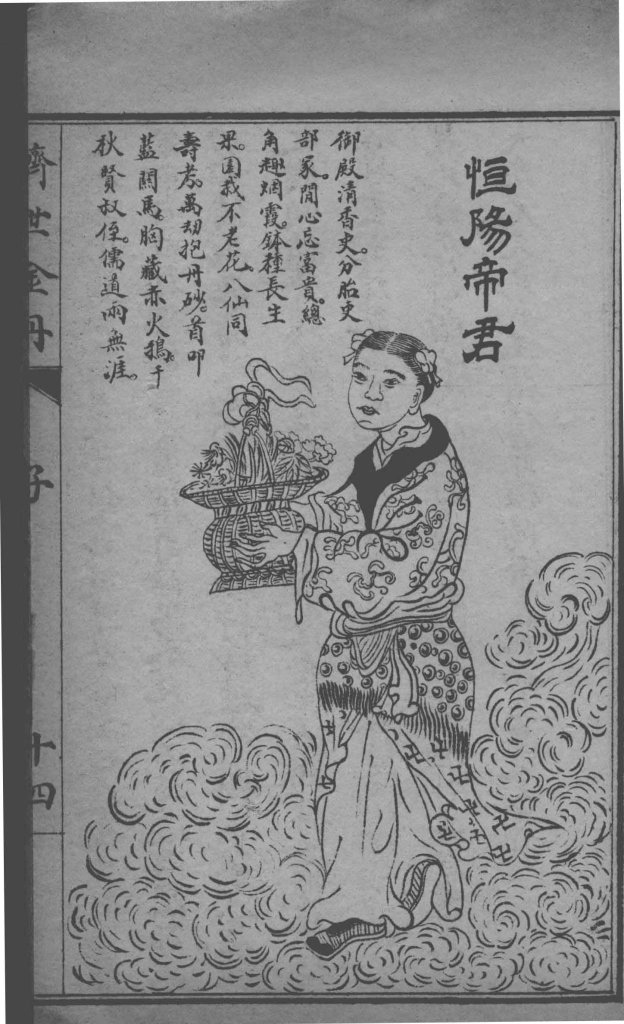 恒陽帝君
御殿清香吏。分胎吏
部家。閒心忘富貴。總
角趣烟霞。鉢種長生
果。園栽不老花。八仙同
壽考。萬劫抱丹砂。首叩
藍關馬。胸藏赤火鵶。千
秋賢叔侄。儒道兩無涯。
濟世金丹